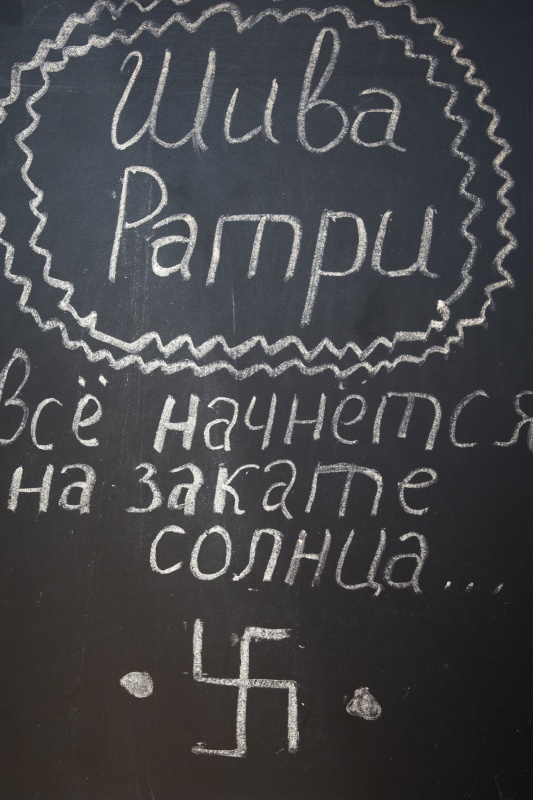 Шива
Ратри
всё начнётся
на закате
солнца...